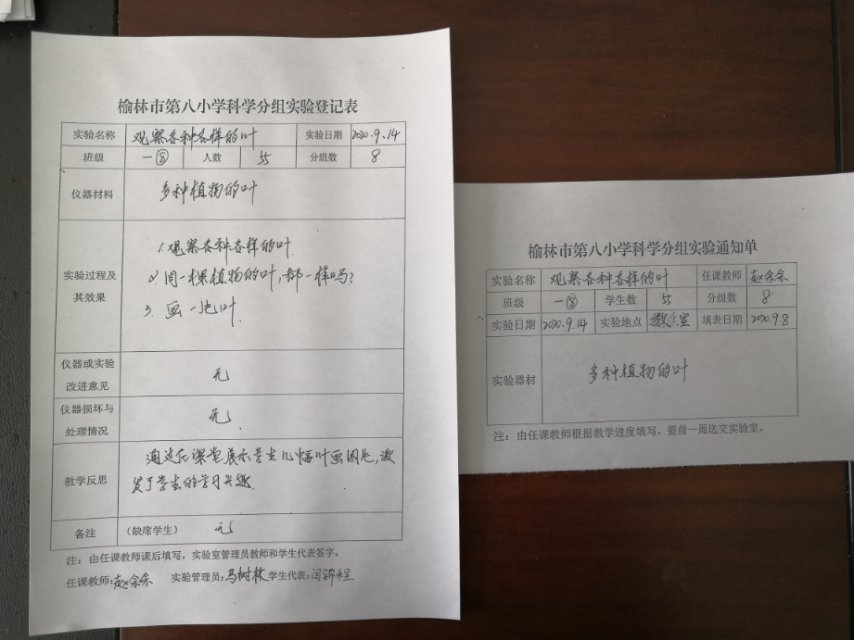 榆林市第八小学科学分组实验登记表
实验名称 观察各种各样的叶 实验日期 2020.9.14
班级 一⑧ 人数 55 分组数 8
仪器材料 多种植物的叶
实验过程及其效果
1.观察各种各样的叶.
2.同一棵植物的叶,都一样吗?
3.画一片叶.
仪器或实验
改进意见 无
仪器损坏与
处理情况 无.
教学反思
通过在课堂展示学生几幅叶画图片,激
发了学生的学习兴趣.
备注 (缺席学生) 无
注:由任课教师课后填写,实验室管理员教师和学生代表签字。
任课教师:赵余余 实验管理员:马树林 学生代表:闫锦程
榆林市第八小学科学分组实验通知单
实验名称 观察各种各样的叶 任课教师 赵余余
班级 一⑧ 学生数 55 分组数 8
实验日期 2020.9.14 实验地点 教室 填表日期 2020.9.8
实验器材 多种植物的叶
注:由任课教师根据教学进度填写,提前一周送交实验室。